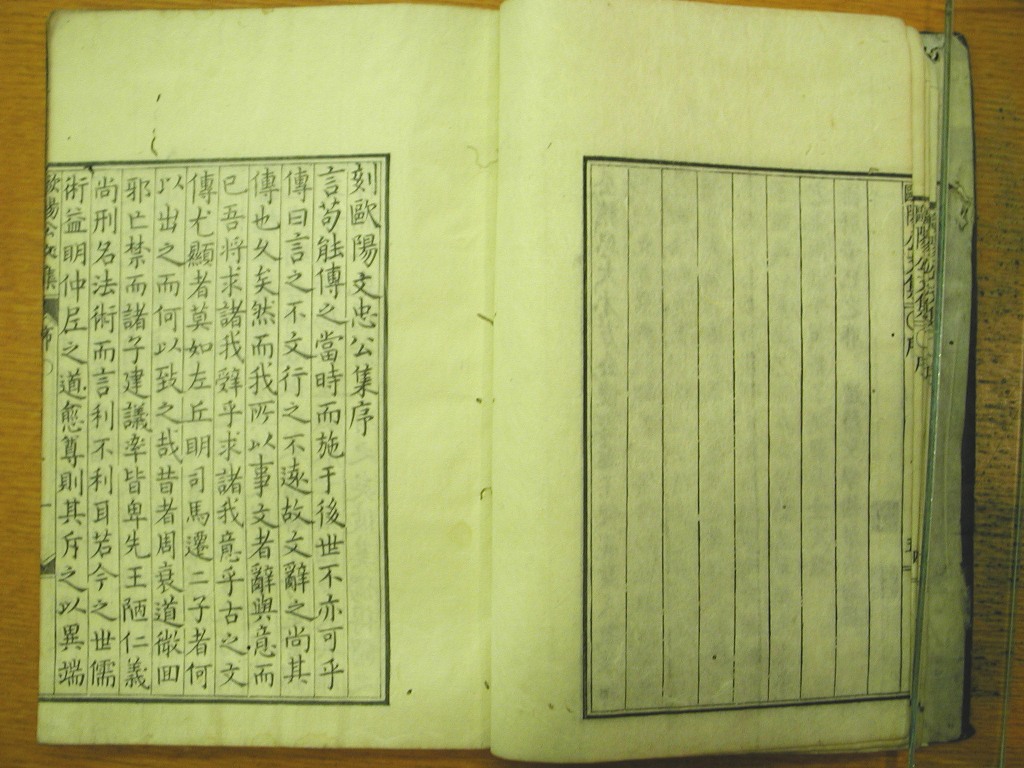 刻歐陽文忠公集序
言苟能傳之當時而施于後世不亦可乎
傳曰言之不文行之不遠故文辭之尚其
傳也久矣然而我所以事文者辭與意而
已吾將求諸我辭乎求諸我意乎古之文
傳尤顯者莫如左丘明司馬遷二子者何
以出之而何以致之哉昔者周衰道微回
邪亡禁而諸子建議率皆卑先王陋仁義
尚刑名法術而言利不利耳若今之世儒
術益明仲尼之道愈尊則其斥之以異端
歐陽公文集
序
歐陽公文集
序
五
歐陽公文集
序